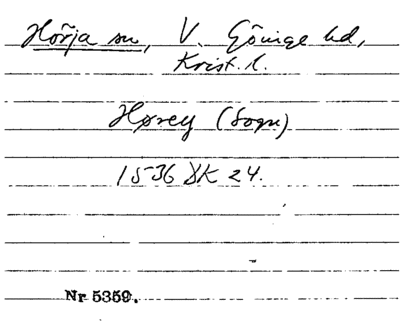 Hörja sn, V. Göinge hd,
Krist. l.
Hørey (Sogn)
1536 DK 24.
Nr 5359.